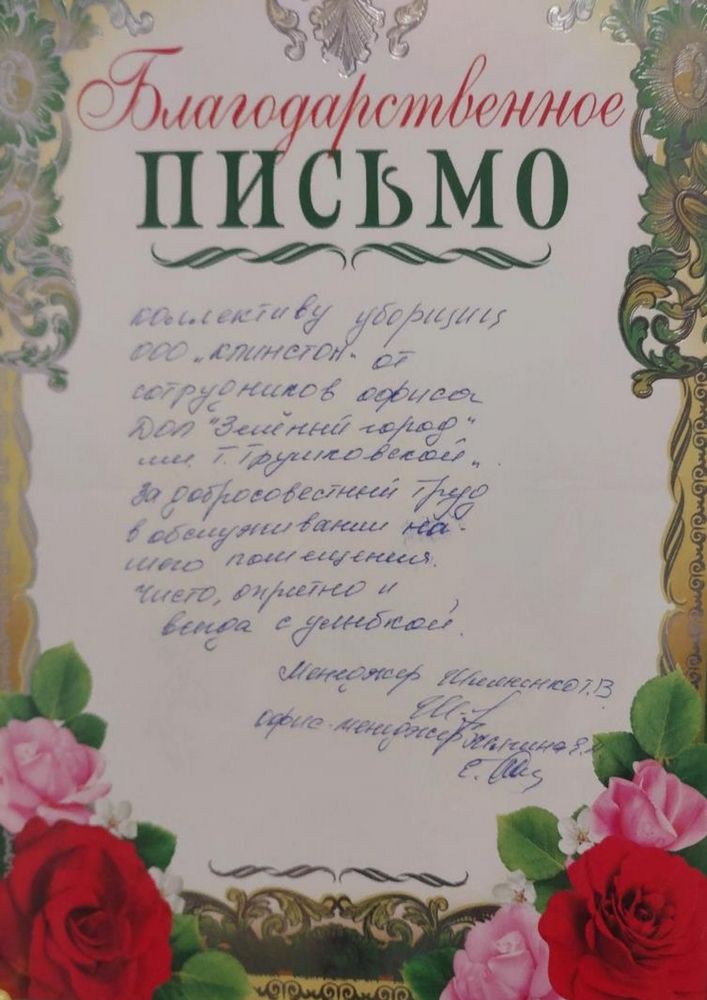 Благодарственное
ПИСЬМО
коллективу уборщиц
ООО „Клинстон" от
сотрудников офиса
ДОЛ "Зелёный город"
им. Т. Трушковской„
За добросовестный труд
в обслуживании на-
шего помещения.
Чисто, опрятно и
всегда с улыбкой.
Менеджер Т.В
офис-менеджер